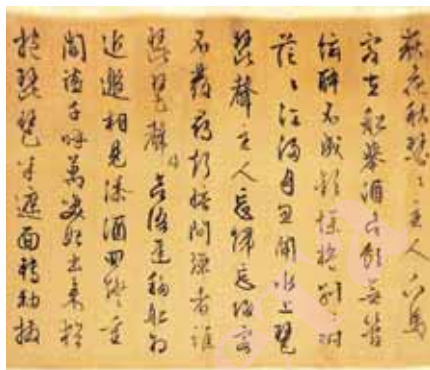 荻花秋瑟々主人下馬
客在船舉酒欲飲無管
絃醉不成歡慘將別々時
茫々江浸月忽聞水上琵
琶聲主人忘歸客
不發尋聲暗問彈者誰
琵琶聲停欲語遲移船相
近邀相見添酒回燈重
開宴千呼萬喚始出來猶
抱琵琶半遮面轉軸撥